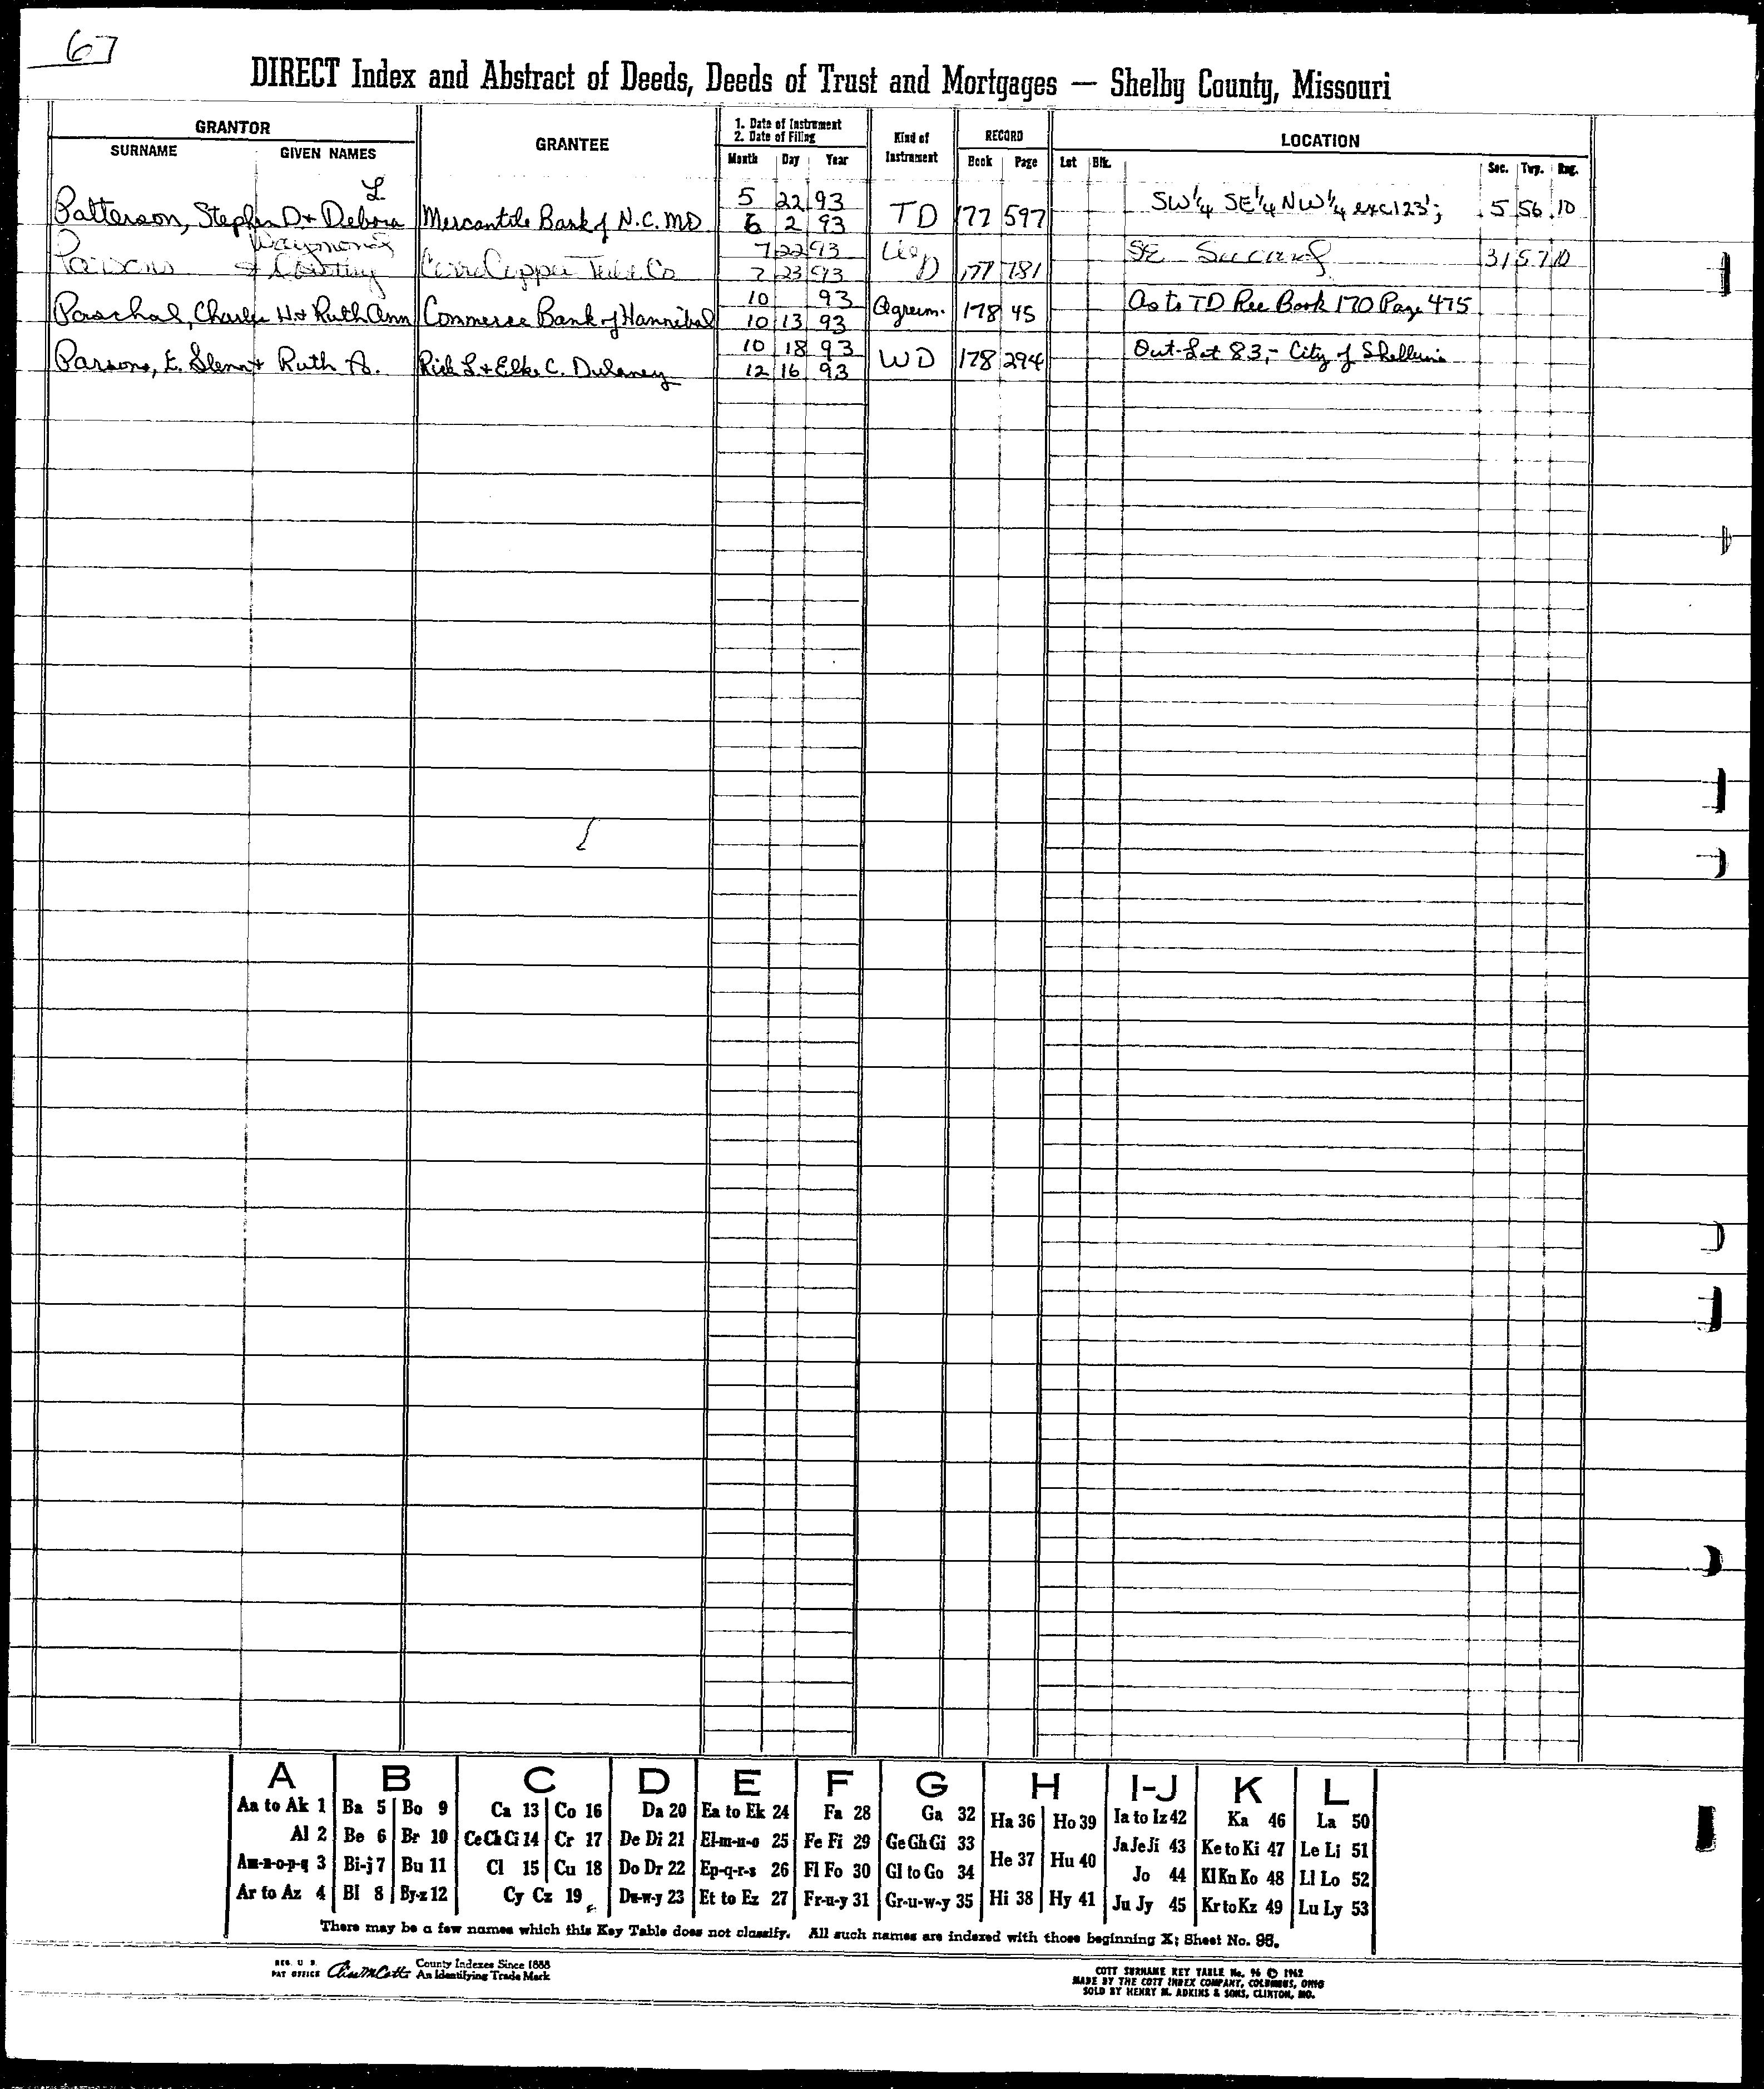 67
DIRECT Index and Abstract of Deeds, Deeds of Trust and Mortgages — Shelby County, Missouri
GRANTOR
SURNAME GIVEN NAMES
GRANTEE
1. Date of Instrument
2. Date of Filing
Month Day Year
Kind of
Instrument
RECORD
Book Page
LOCATION
Lot Blk. Sec. Twp. Rng.
L
Patterson, Stephen D + Debora Mercantile Bank of N.C. MO 5 22 93 TD 177 597 SW 1/4 SE 1/4 NW 1/4 exc 123'; 5 56 10
6 2 93
Raymond 7 22 93
Parsons + Copper Tube Co 7 23 93 D 177 781 SE 31 57 10
Paschal, Charles H + Ruth Ann Commerce Bank of Hannibal 10 93 Agreem. 178 45 As to TD Rec Book 170 Page 475
10 13 93
Parsons, E. Glenn + Ruth A. Rick L + Elke C. Dulaney 10 18 93 WD 178 294 Out-Lot 83,- City of Shelbina
12 16 93
A B C D E F G H I-J K L
Aa to Ak 1 Ba 5 Bo 9 Ca 13 Co 16 Da 20 Ea to Ek 24 Fa 28 Ga 32 Ha 36 Ho 39 Ia to Iz 42 Ka 46 La 50
Al 2 Be 6 Br 10 Ce Ch Ci 14 Cr 17 De Di 21 El-m-n-o 25 Fe Fi 29 Ge Gh Gi 33 He 37 Hu 40 Ja Je Ji 43 Ke to Ki 47 Le Li 51
Am-n-o-p-q 3 Bi-j 7 Bu 11 Cl 15 Cu 18 Do Dr 22 Ep-q-r-s 26 Fl Fo 30 Gl to Go 34 Jo 44 Kl Kn Ko 48 Ll Lo 52
Ar to Az 4 Bl 8 By-z 12 Cy Cz 19 Du-w-y 23 Et to Ez 27 Fr-u-y 31 Gr-u-w-y 35 Hi 38 Hy 41 Ju Jy 45 Kr to Kz 49 Lu Ly 53
There may be a few names which this Key Table does not classify. All such names are indexed with those beginning X; Sheet No. 96.
REG. U. S.
PAT OFFICE
County Indexes Since 1888
An Identifying Trade Mark
COTT SURNAME KEY TABLE No. 96 © 1962
MADE BY THE COTT INDEX COMPANY, COLUMBUS, OHIO
SOLD BY HENRY M. ADKINS & SONS, CLINTON, MO.